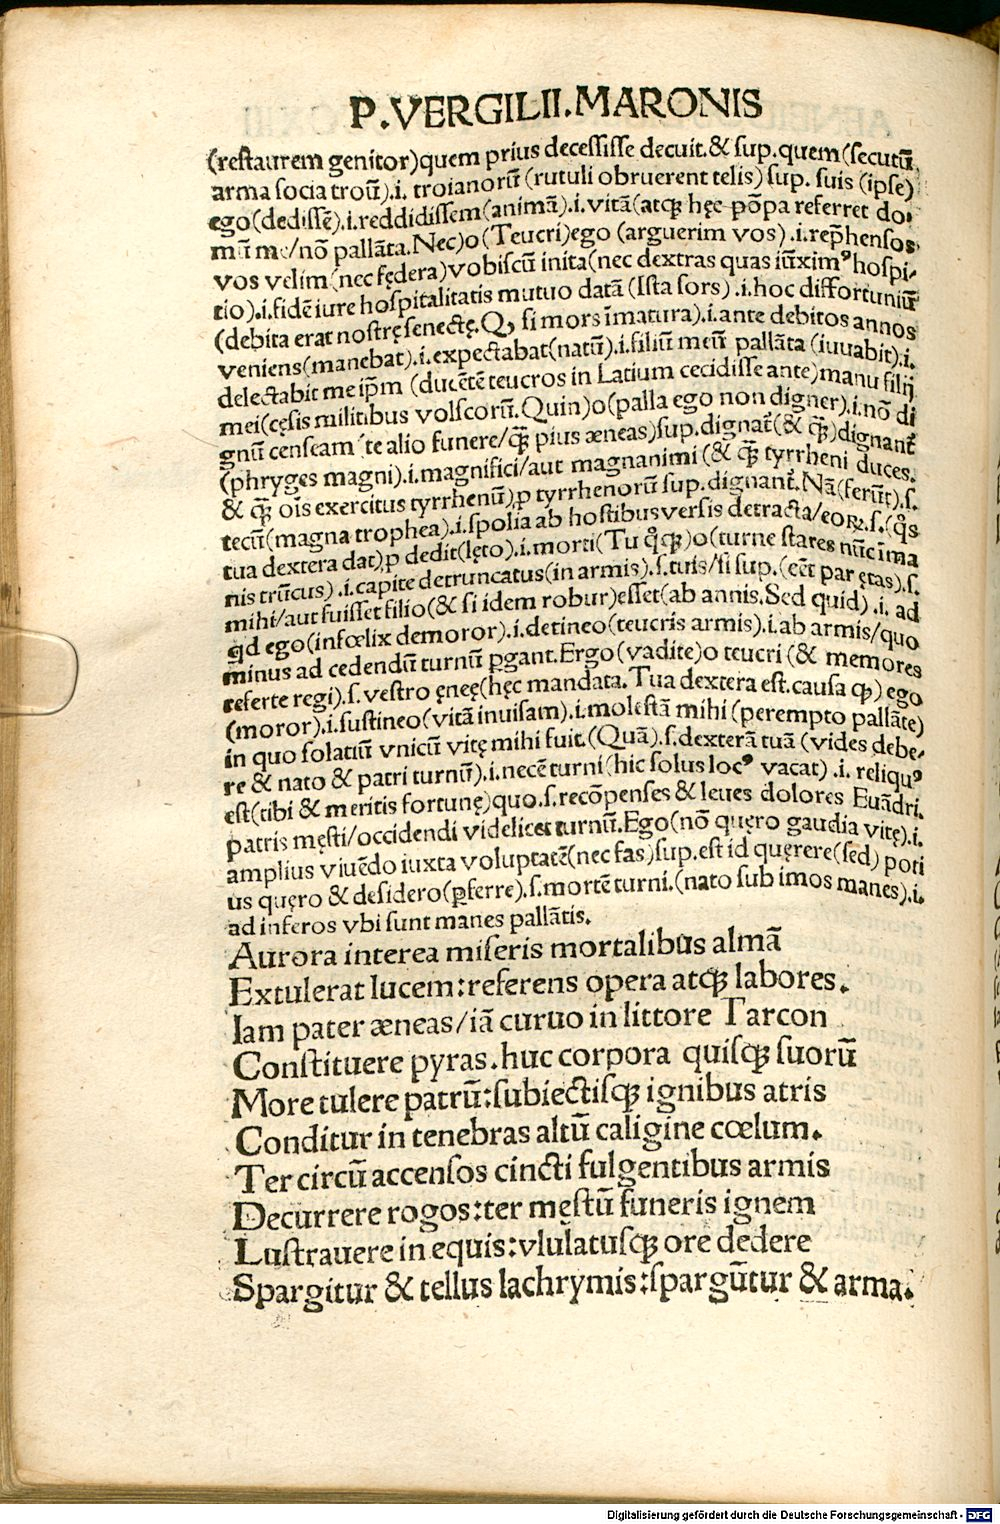 P.VERGILII.MARONIS
(restaurem genitor)quem prius decessisse decuit.& sup.quem(secutū
arma socia troū).i. troianorū (rutuli obruerent telis) sup. suis (ipse)
ego(dedissē).i.reddidissem(animā).i.vitā(atqꝫ hęc pōpa referret do⸗
mū me/nō pallāta.Nec)o(Teucri)ego (arguerim vos).i.rep̄hensos
vos velim(nec fędera)vobiscū inita(nec dextras quas iūximꝰ hospi⸗
tio).i.fidē iure hospitalitatis mutuo datā (Ista sors).i.hoc diffortuniū
(debita erat nostrę senectę.Qꝫ si mors īmatura).i.ante debitos annos
veniens(manebat).i.expectabat(natū).i.filiū meū pallāta (iuuabit).i.
delectabit me ip̄m (ducētē teucros in Latium cecidisse ante)manu filij
mei(cęsis militibus volscorū.Quin)o(palla ego non digner).i.nō di
gnū censeam te alio funere/qꝫ̄ pius æneas)sup.dignat᷑(& qꝫ̄)dignant᷑
(phryges magni).i.magnifici/aut magnanimi(& qꝫ̄ tyrrheni duces.
& qꝫ̄ oīs exercitus tyrrhenū),ꝓ tyrrhenorū sup.dignant᷑.Nā(ferūt).s.
tecū(magna trophea).i.spolia ab hostibus versis detracta/eoꝝ.s.(q̊s
tua dextera dat),ꝓ dedit(lęto).i.morti(Tu q̊qꝫ)o(turne stares nūc īma
nis trūcus).i.capite detruncatus(in armis).s.tuis/si sup.(eēt par ętas).s.
mihi/aut fuisset filio(& si idem robur)esset(ab annis.Sed quid).i. ad
qd ego(infœlix demoror).i.detineo(teucris armis).i.ab armis/quo
minus ad cedendū turnū ꝑgant.Ergo(vadite)o teucri(& memores
referte regi).s.vestro ęneę(hęc mandata.Tua dextera est.causa qꝫ) ego
(moror).i.sustineo(vitā inuisam).i.molestā mihi(perempto pallāte)
in quo solatiū vnicū vitę mihi fuit.(Quā).s.dexterā tuā (vides debe⸗
re & nato & patri turnū).i.necē turni(hic solus locꝰ vacat).i. reliquꝰ
est(tibi & meritis fortunę)quo.s.recōpenses & leues dolores Euādri.
patris męsti/occidendi videlicet turnū.Ego(nō quęro gaudia vitę).i.
amplius viuēdo iuxta voluptatē(nec fas)sup.est id quęrere(sed) poti
us quęro & desidero(ꝑferre).s.mortē turni.(nato sub imos manes).i.
ad inferos vbi sunt manes pallātis.
Aurora interea miseris mortalibus almā
Extulerat lucem:referens opera atqꝫ labores.
Iam pater æneas/iā curuo in littore Tarcon
Constituere pyras.huc corpora quisqꝫ suorū
More tulere patrū:subiectisqꝫ ignibus atris
Conditur in tenebras altū caligine cœlum.
Ter circū accensos cincti fulgentibus armis
Decurrere rogos:ter męstū funeris ignem
Lustrauere in equis:vlulatusqꝫ ore dedere
Spargitur & tellus lachrymis:spargūtur & arma.
Digitalisierung gefördert durch die Deutsche Forschungsgemeinschaft - DFG